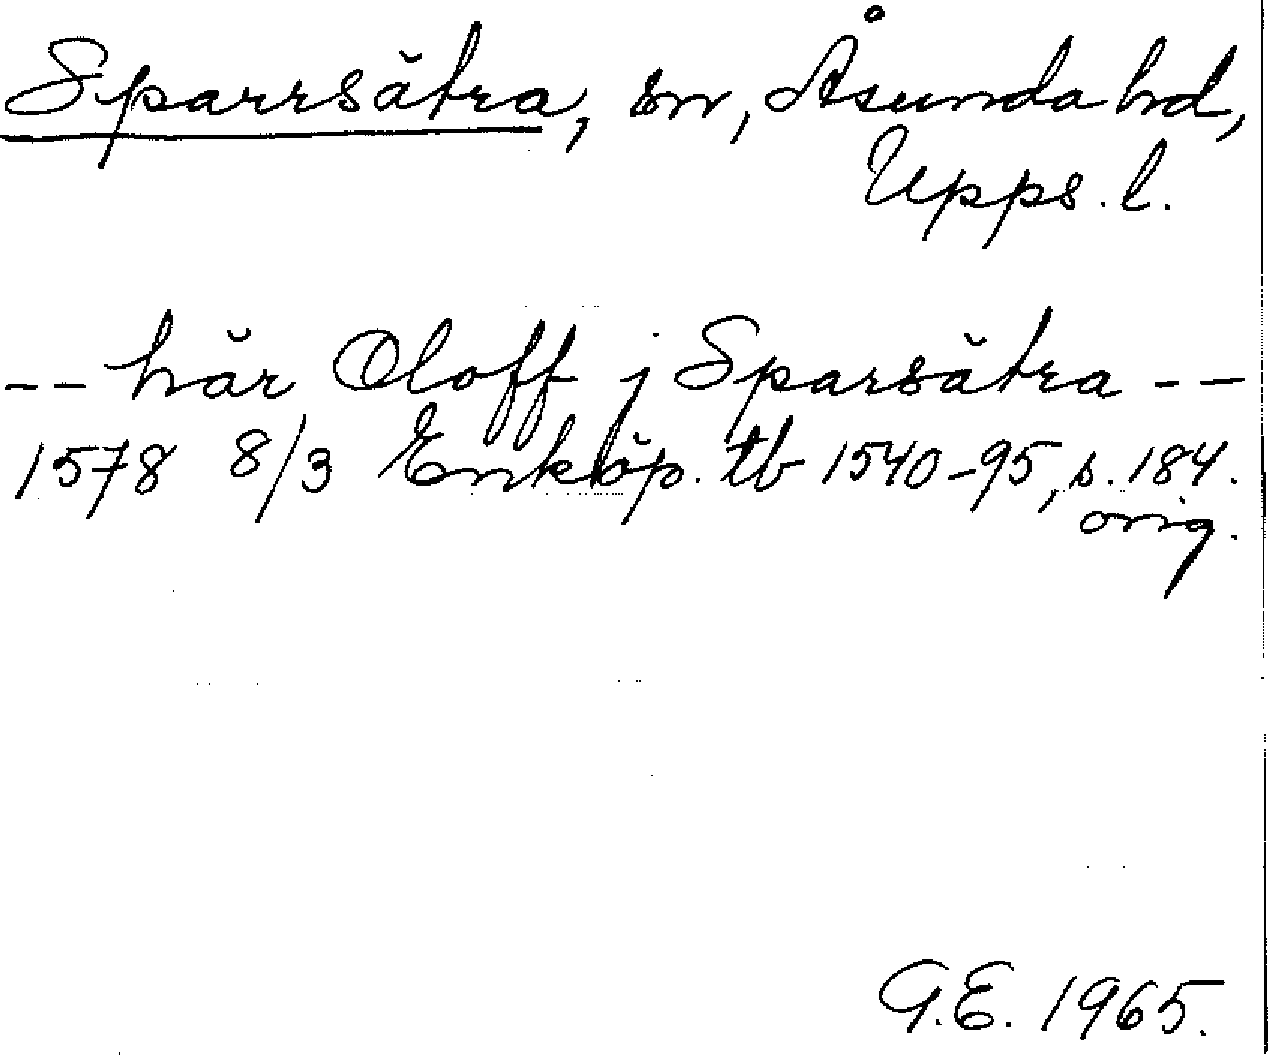 Sparrsätra, sn, Åsunda hd,
Upps. l.
-- här Oloff j Sparsätra --
1578 8/3 Enköp. tb 1540-95, s. 184.
orig.
G.E. 1965.